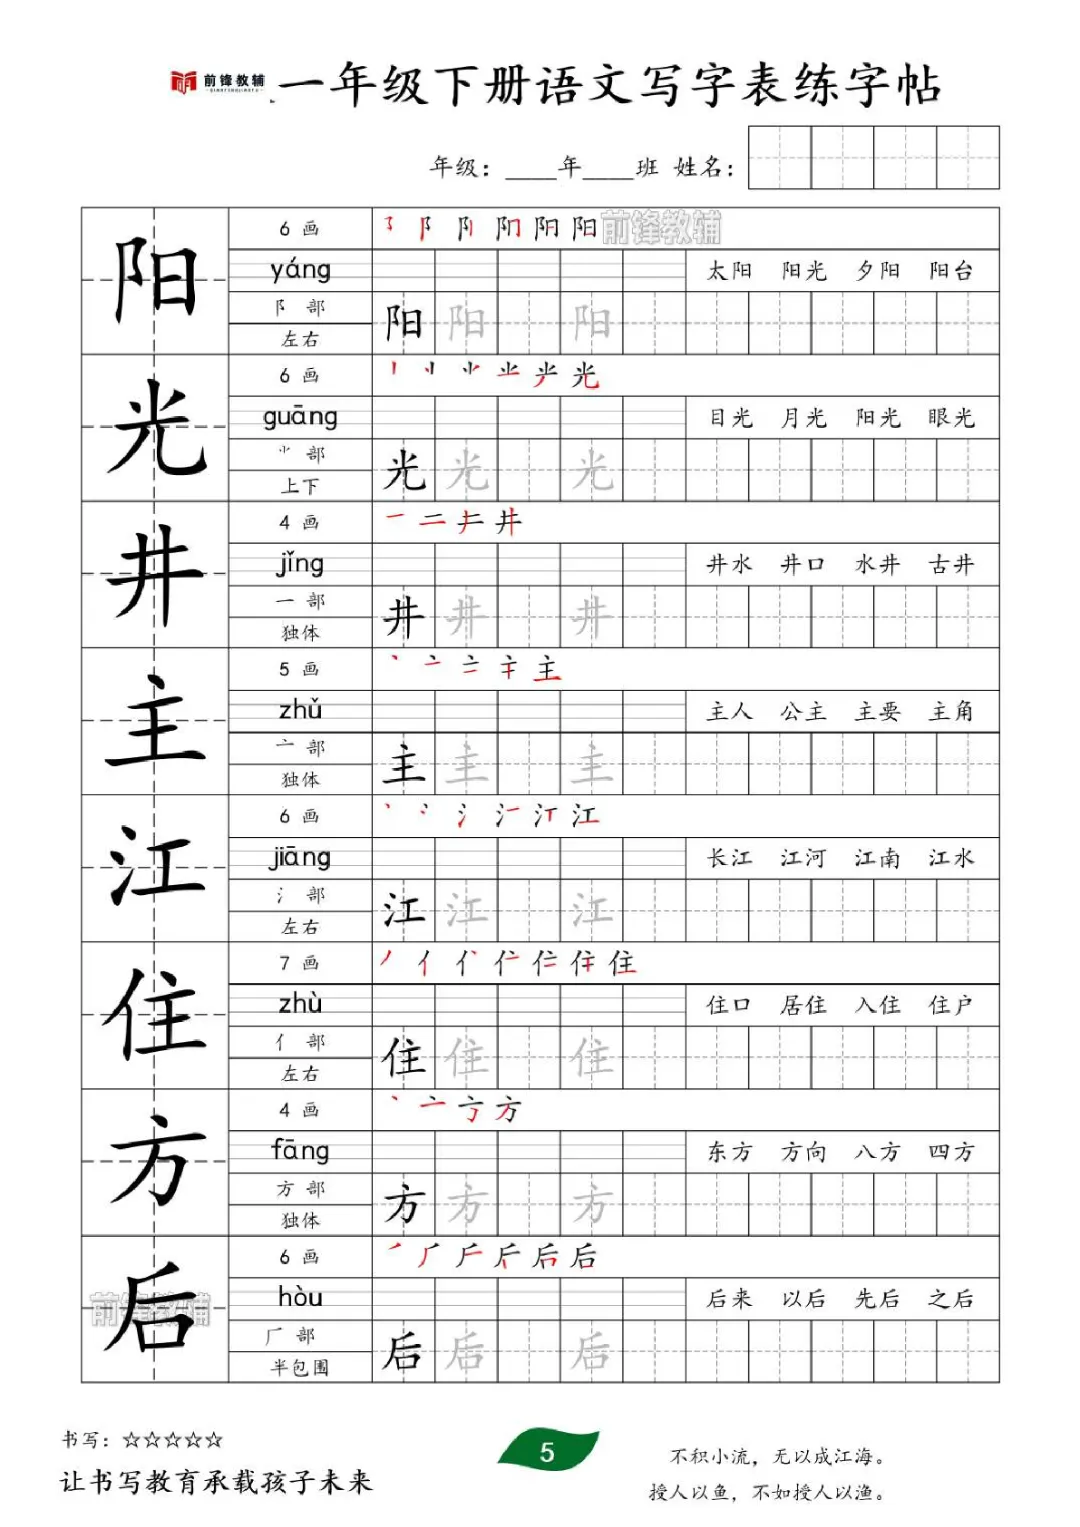 前锋教辅 一年级下册语文写字表练字帖
年级：____年____班 姓名：
阳
6 画
前锋教辅
yáng
太阳 阳光 夕阳 阳台
阝 部
左右
阳 阳 阳
光
6 画
guāng
目光 月光 阳光 眼光
⺌ 部
上下
光 光 光
井
4 画
一 二 丰 井
jǐng
井水 井口 水井 古井
一 部
独体
井 井 井
主
5 画
zhǔ
主人 公主 主要 主角
亠 部
独体
主 主 主
江
6 画
jiāng
长江 江河 江南 江水
氵 部
左右
江 江 江
住
7 画
zhù
住口 居住 入住 住户
亻 部
左右
住 住 住
方
4 画
fāng
东方 方向 八方 四方
方 部
独体
方 方 方
后
6 画
hòu
后来 以后 先后 之后
厂 部
半包围
后 后 后
前锋教辅
书写：☆☆☆☆☆
让书写教育承载孩子未来
5
不积小流，无以成江海。
授人以鱼，不如授人以渔。